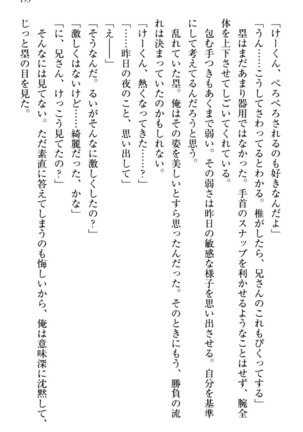 「けーくん、べろべろされるのも好きなんだよ」
「うん……こうしてさわってるとわかる。椎がしたら、兄さんのこれもびくってする」
塁はまだあまり器用ではなかった。手首のスナップを利かせるようなことはせず、腕全
体を上下させてしごいてくれている。
包む手つきもあくまで弱い。その弱さは昨日の敏感な様子を思い出させる。自分を基準
にして考えてるんだろうと思う。
乱れていた塁。俺はその姿を美しいとすら思ったんだった。そのときにもう、勝負の流
れは決まっていたのかもしれない。
「けーくん、熱くなってきた……？」
「……昨日の夜のこと、思い出して」
「え――」
「そうなんだ。るいがそんなに激しくしたの？」
「激しくはないけど……綺麗だった、かな」
「に、兄さん、けっこう見てたの？」
そんなには見てない。ただ素直に答えてしまうのも悔しいから、俺は意味深に沈黙して、
じっと塁の目を見た。